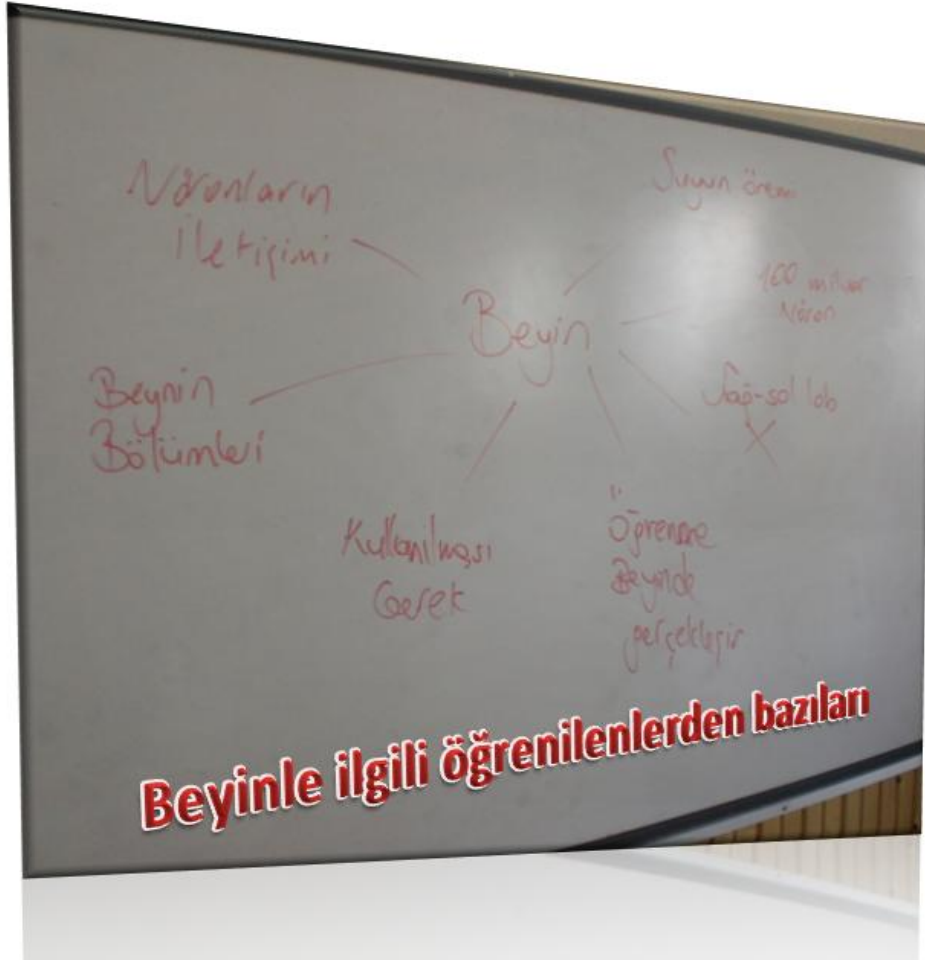 Nöronların
İletişimi
Suyun önemi
100 milyar
Nöron
Beyin
Beynin
Bölümleri
Sağ-sol lob
X
Kullanılması
Gerek
Öğrenme
Beyinde
gerçekleşir
Beyinle ilgili öğrenilenlerden bazıları